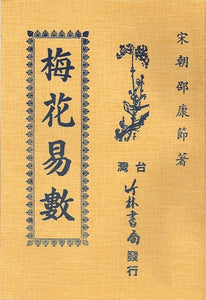 宋朝邵康節著
梅花易數
台灣
竹林書局
發行